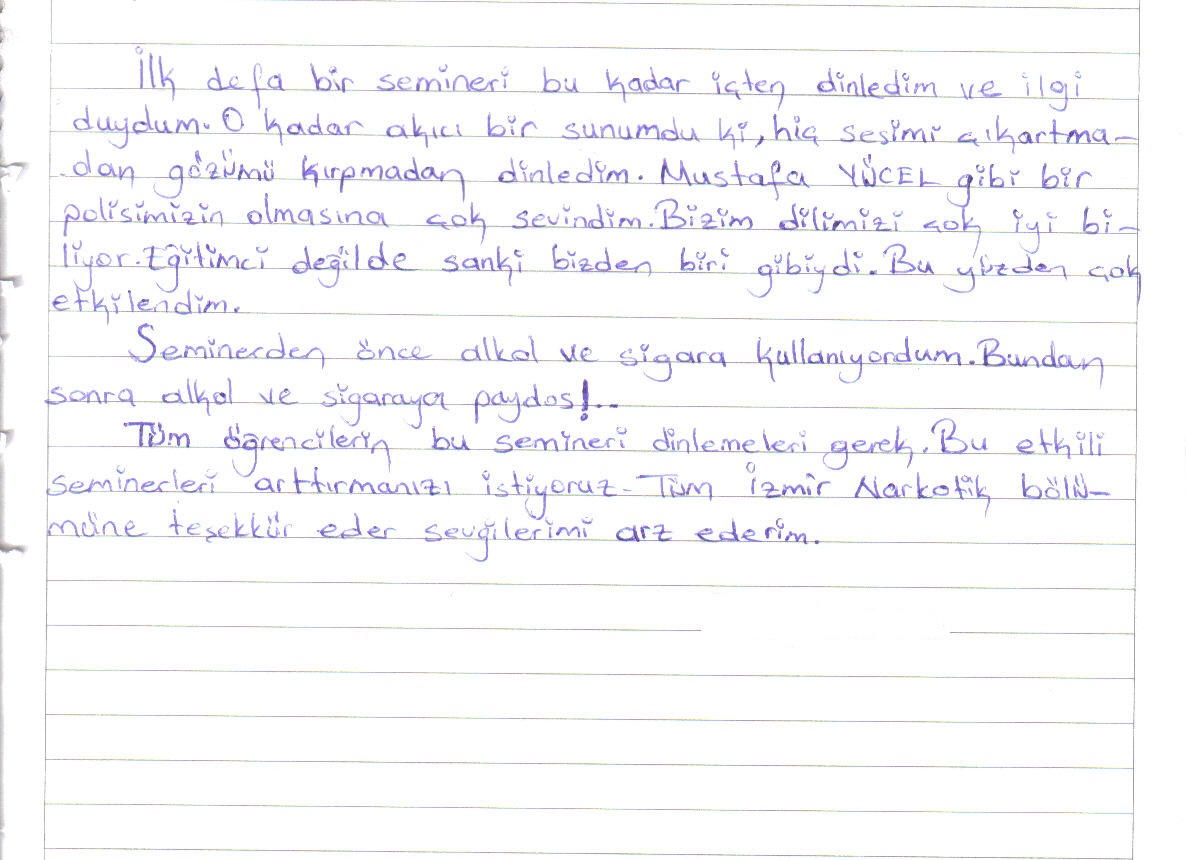 İlk defa bir semineri bu kadar içten dinledim ve ilgi
duydum. O kadar akıcı bir sunumdu ki, hiç sesimi çıkartma-
dan gözümü kırpmadan dinledim. Mustafa YÜCEL gibi bir
polisimizin olmasına çok sevindim. Bizim dilimizi çok iyi bi-
liyor. Eğitimci değilde sanki bizden biri gibiydi. Bu yüzden çok
etkilendim.
Seminerden önce alkol ve sigara kullanıyordum. Bundan
sonra alkol ve sigaraya paydos!..
Tüm öğrencilerin bu semineri dinlemeleri gerek. Bu etkili
seminerleri arttırmanızı istiyoruz. Tüm İzmir Narkotik bölü-
müne teşekkür eder sevgilerimi arz ederim.